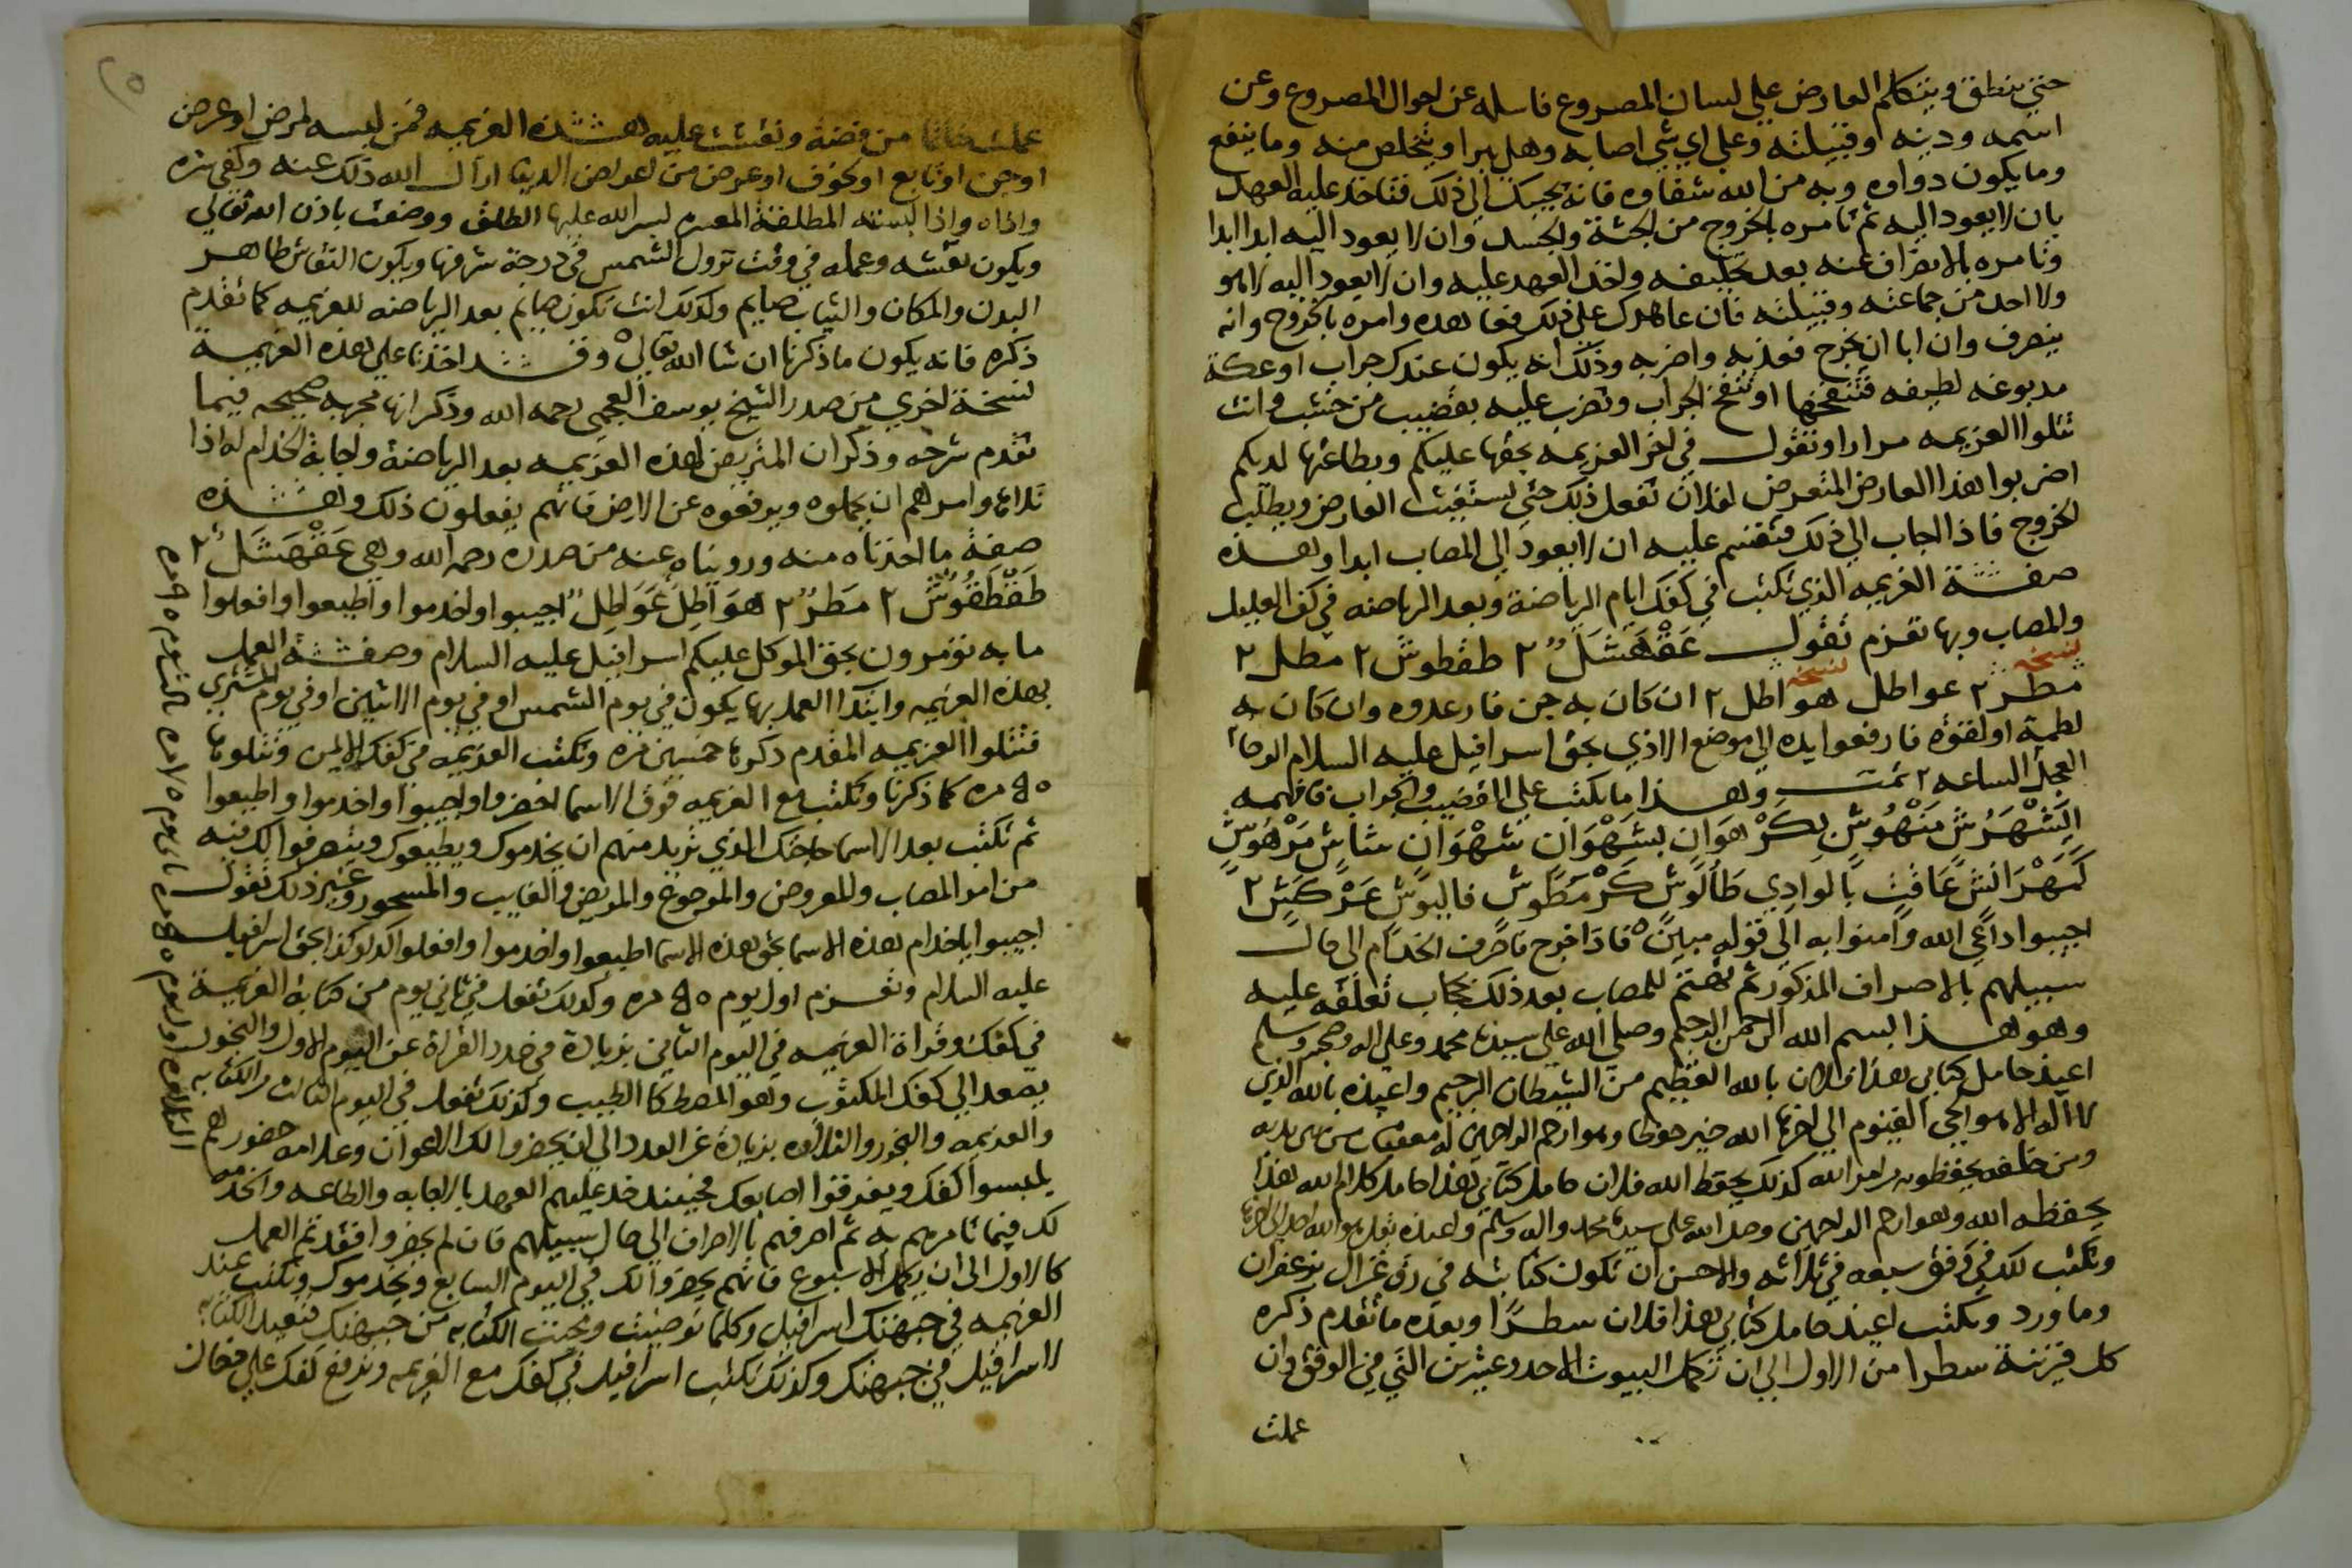 حتي ينطق ويتكلم العارض علي لسان المصروع فاسله عن احوال المصروع وعن
اسمه ودينه وقبيلته وعلي اي شي اصابه وهل يبرا ويتخلص منه وما ينفع
وما يكون دواوه وبه من الله شفاوه فانه يجيبك الي ذلك فتاخذ عليه العهد
بان لا يعود اليه ثم تامره بالخروج من الجثة والجسد وان لا يعود اليه ابدا ابدا
وتامره بالانصراف عنه بعد تحليفه واخذ العهد عليه وان لا يعود اليه لا هو
ولا احد من جماعته وقبيلته فان عاهدك علي ذلك فعاهده وامره بالخروج وانه
ينصرف وان ابا ان يخرج فعذبه واضربه وذلك انه يكون عندك جراب او عكة
مدبوغه لطيفه فتنفخها او تنفخ الجراب وتضرب عليه بقضيب من خشب وانت
تتلوا العزيمه مرارا وتقول في اخر العزيمه بحقها عليكم وبطاعتها لديكم
اضربوا هذا العارض المتعرض لفلان تفعل ذلك حتي يستغيث العارض ويطلب
الخروج فاذا اجاب الي ذلك فتقسم عليه ان لا يعود الي المصاب ابدا وهذه
صفة العزيمه الذي تكتب في كفك ايام الرياضة وبعد الرياضه في كف العليل
والمصاب وبها تعزم تقول عَقْهَشَلٍ ٢ طقطوش ٢ مطل ٢
نسخه نسخه
مطر ٢ عواطل هواطل ٢ ان كان به جن فارعدوه وان كان به
لطمة او لقوه فارفعوا يده الي موضع الاذي بحق اسرافيل عليه السلام الوحا
العجل الساعه ٢ تمت وهذا ما يكتب علي القضيب والجراب فافهمه
اجيبوا داعي الله وامنوا به الي قوله مبين فاذا خرج فاصرف الخدام الي حال
سبيلهم بالاصراف المذكور ثم تهتم للمصاب بعد ذلك بحجاب تعلقه عليه
وهو هذا بسم الله الرحمن الرحيم وصلي الله علي سيدنا محمد وعلي اله وصحبه وسلم
اعيذ حامل كتابي هذا فلان بالله العظيم من الشيطان الرجيم واعيذه بالله الذي
لا اله الا هو الحي القيوم الي اخرها الله خير حفظا وهو ارحم الراحمين له معقبات من بين يديه
ومن خلفه يحفظونه من امر الله كذلك يحفظ الله فلان حامل كتابي هذا حامل كلام الله هذا
يحفظه الله وهو ارحم الراحمين وصلى الله على سيدنا محمد واله وسلم واعيذه بقل هو الله احد الى اخرها
وتكتب لك في وفق سبعه في ثلاثه والاحسن ان تكون كتابته في رق غزال بزعفران
وما ورد وتكتب اعيذ حامل كتابي هذا فلان سطرًا وبعده ما تقدم ذكره
كل قرينة سطرا من الاول الي ان تكمل البيوت الاحد وعشرين التي في الوفق وان
عملت
٢٥
عملت خاتما من فضة ونقشت عليه هذه العزيمه فمن لبسه لمرض او عرض
او جن او تابع او لخوف او عرض من اعراض الدنيا ازال الله ذلك عنه وكفي شره
واذاه واذا لبسته المطلقة المعسره يسر الله عليها الطلق ووضعت باذن الله تعالي
ويكون نقشه وعمله في وقت نزول الشمس في درجة شرفها ويكون النقاش طاهر
البدن والمكان والثياب صايم وكذلك انت تكون صايم بعد الرياضه للعزيمه كما تقدم
ذكره فانه يكون ما ذكرنا ان شا الله تعالي وقد اخذنا علي هذه العزيمة
نسخة اخري من صدر الشيخ يوسف العجمي رحمه الله وذكر انها مجربه صحيحه فيما
تقدم شرحه وذكر ان المتريض لهذه العزيمه بعد الرياضة واجابة الخدام له اذا
تلاها وامرهم ان يحملوه ويرفعوه عن الارض فانهم يفعلون ذلك وهذه
صفة ما اخذناه منه ورويناه عنه من صدره رحمه الله وهي عَقْهَشَلٍ ٢
طَقْطَقُوشٍ ٢ مَطَرٍ ٢ هَوَاطِلَ عَوَاطِلٍ اجيبوا واخدموا واطيعوا وافعلوا
ما به تومرون بحق الموكل عليكم اسرافيل عليه السلام وصفة العمل
بهذه العزيمه وابتدا العمل بها يكون في يوم الشمس او في يوم الاثنين او في يوم المشتري
فتتلوا العزيمه المقدم ذكرها خمسين مره وتكتب العزيمه في كفك الايمن وتتلوها
مره كما ذكرنا وتكتب مع العزيمه فوق الاسما احضروا واجيبوا واخدموا واطيعوا
ثم تكتب بعد الاسما حاجتك الذي تريد منهم ان يخدموك ويطيعوك ويتصرفوا لك فيه
من امر المصاب والمعروض والموجوع والمريض والغايب والمسحور وغير ذلك تقول
اجيبوا يا خدام هذه الاسما بحق هذه الاسما اطيعوا واخدموا وافعلوا كذا وكذا بحق اسرافيل
عليه السلام وتعزم اول يوم مره وكذلك تفعل في ثاني يوم من كتابة العزيمة
في كفك وقراة العزيمه في اليوم الثاني بزيادة في عدد القراة عن اليوم الاول والبخور
يصعد الي كفك المكتوب وهو المصطكا الطيب وكذلك تفعل في اليوم الثالث من الكتابه
والعزيمه والبخور والتلاوه بزيادة عن العدد الي ان يحضروا لك الاعوان وعلامه حضورهم
يلمسوا كفك ويفرقوا اصابعك فحينيذ خذ عليهم العهد بالاجابه والطاعه والخدمه
لك فيما تامرهم به ثم اصرفهم بالاصراف الي حال سبيلهم فان لم يحضروا فتعيد ثم العمل
كالاول الى ان يكمل الاسبوع فانهم يحضروا لك في اليوم السابع ويخدموك وتكتب عند
العزيمه في جبهتك اسرافيل وكلما توضيت ومحيت الكتابه من جبهتك فتعيد الكتابه
لاسرافيل في جبهتك وكذلك تكتب اسرافيل في كفك مع العزيمه وترفع كفك علي